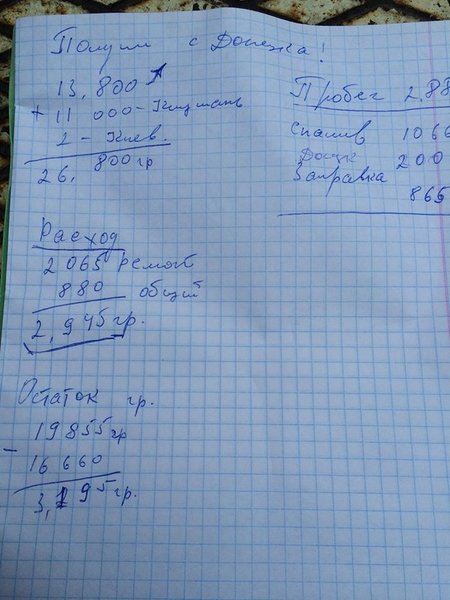 Получил с Донецка!
13,800
+ 11 000 -
2 - Киев.
26. 800 гр
Расход
2 065 ремонт
880 общий
2,945 гр.
Остаток гр.
19855 гр
- 16 660
3,195 гр.
Пробег 2,88
1066
200
Заправка
865